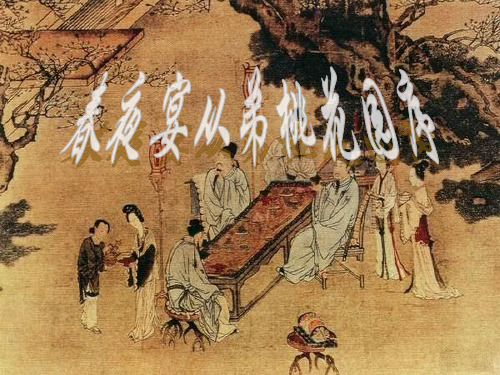 春夜宴从弟桃花园序